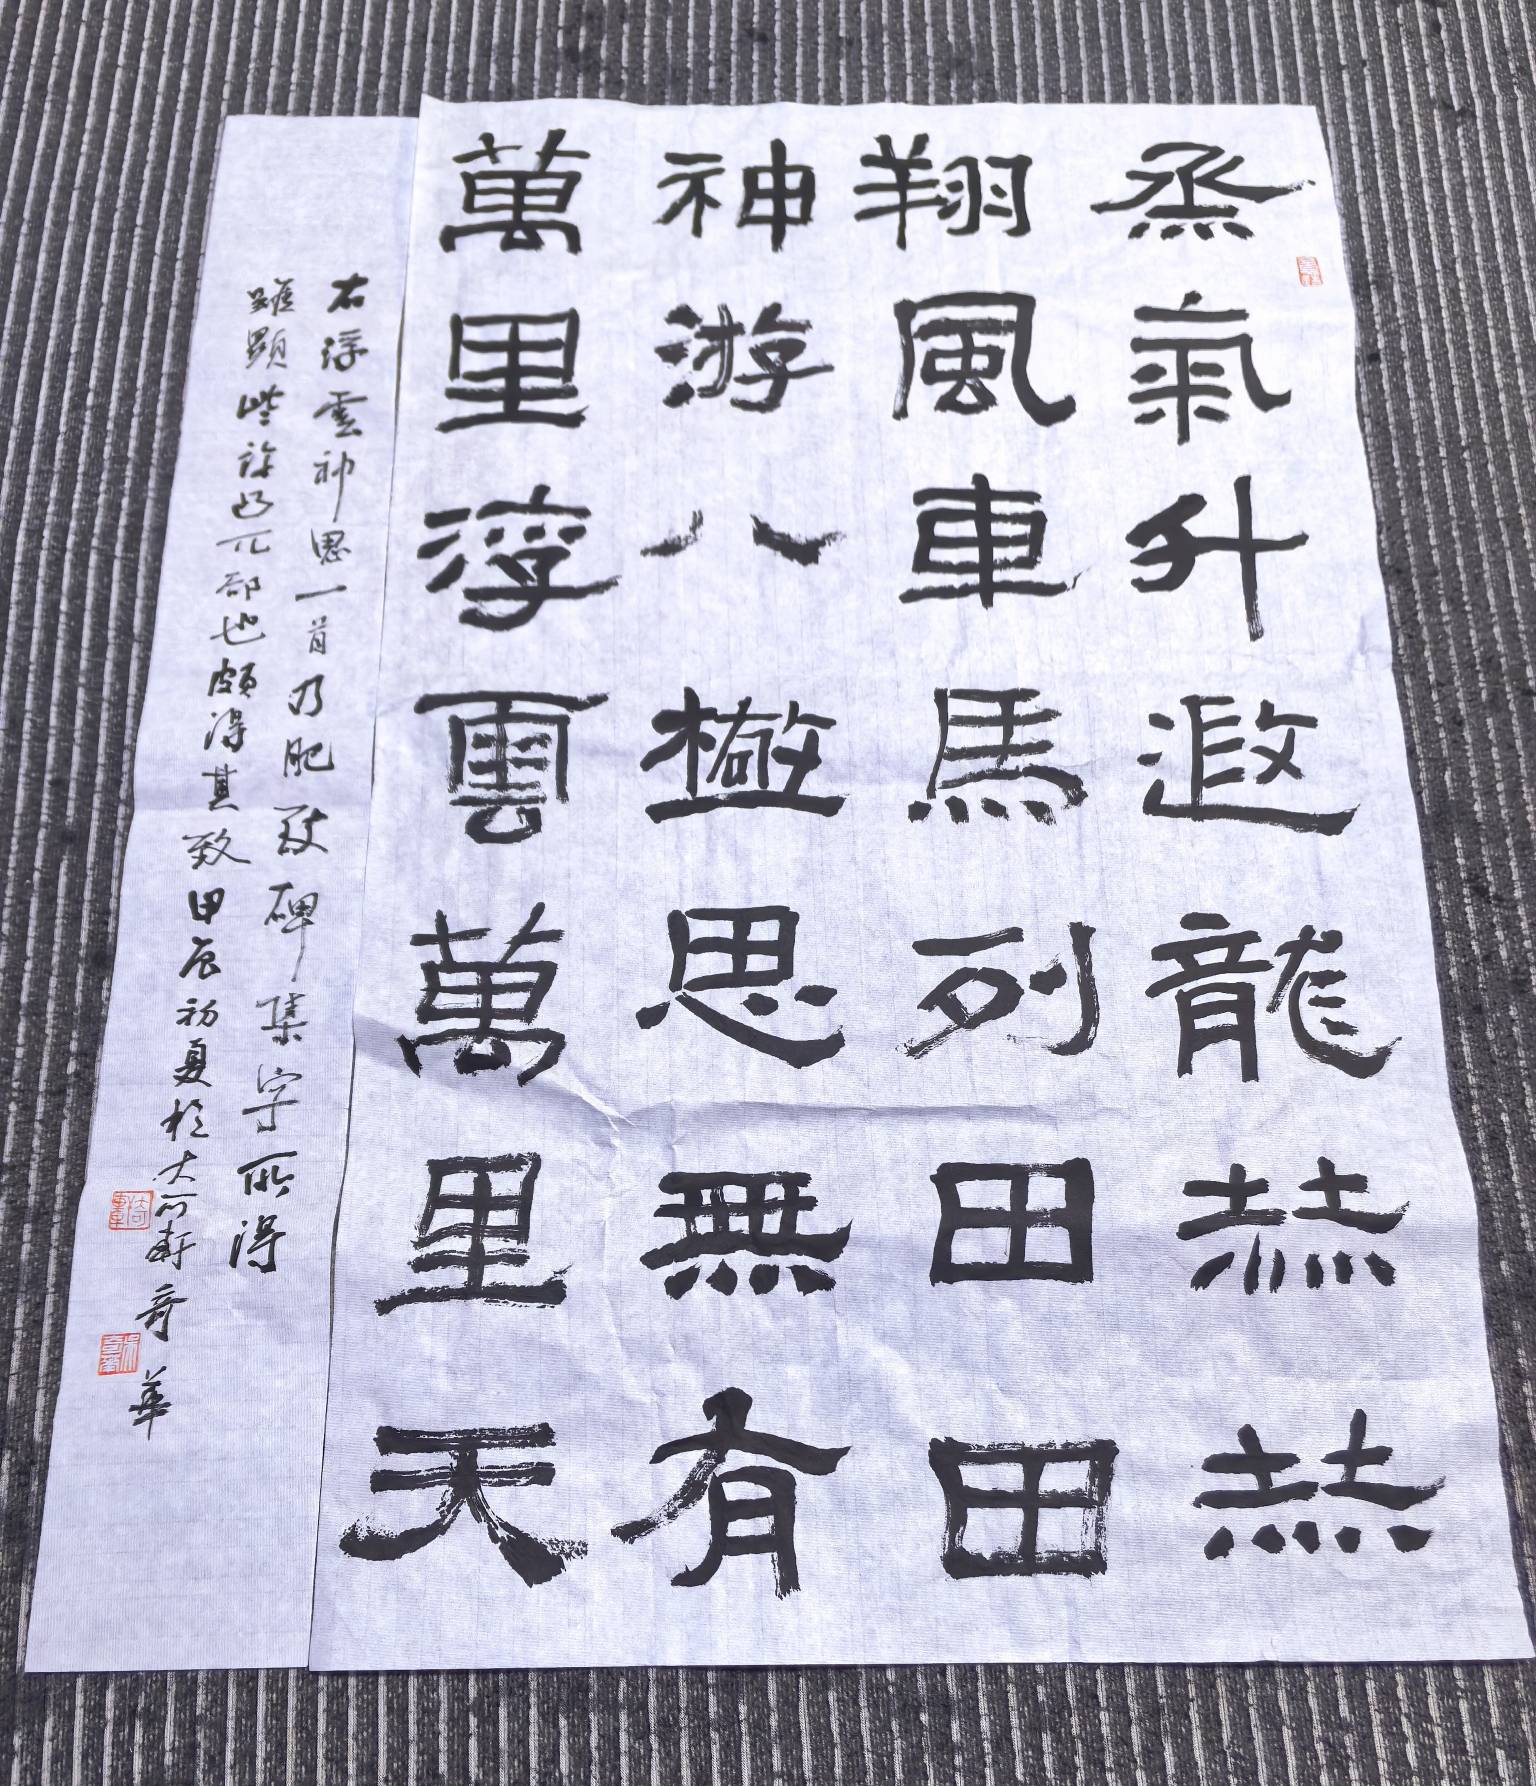 烝氣升遐龍赫赫
翔風車馬列田田
神游八極思無有
萬里浮雲萬里天
右浮雲神思一首乃肥致碑集字所得
雖顯些許凸兀部也頗得其致甲辰初夏於大可軒奇華